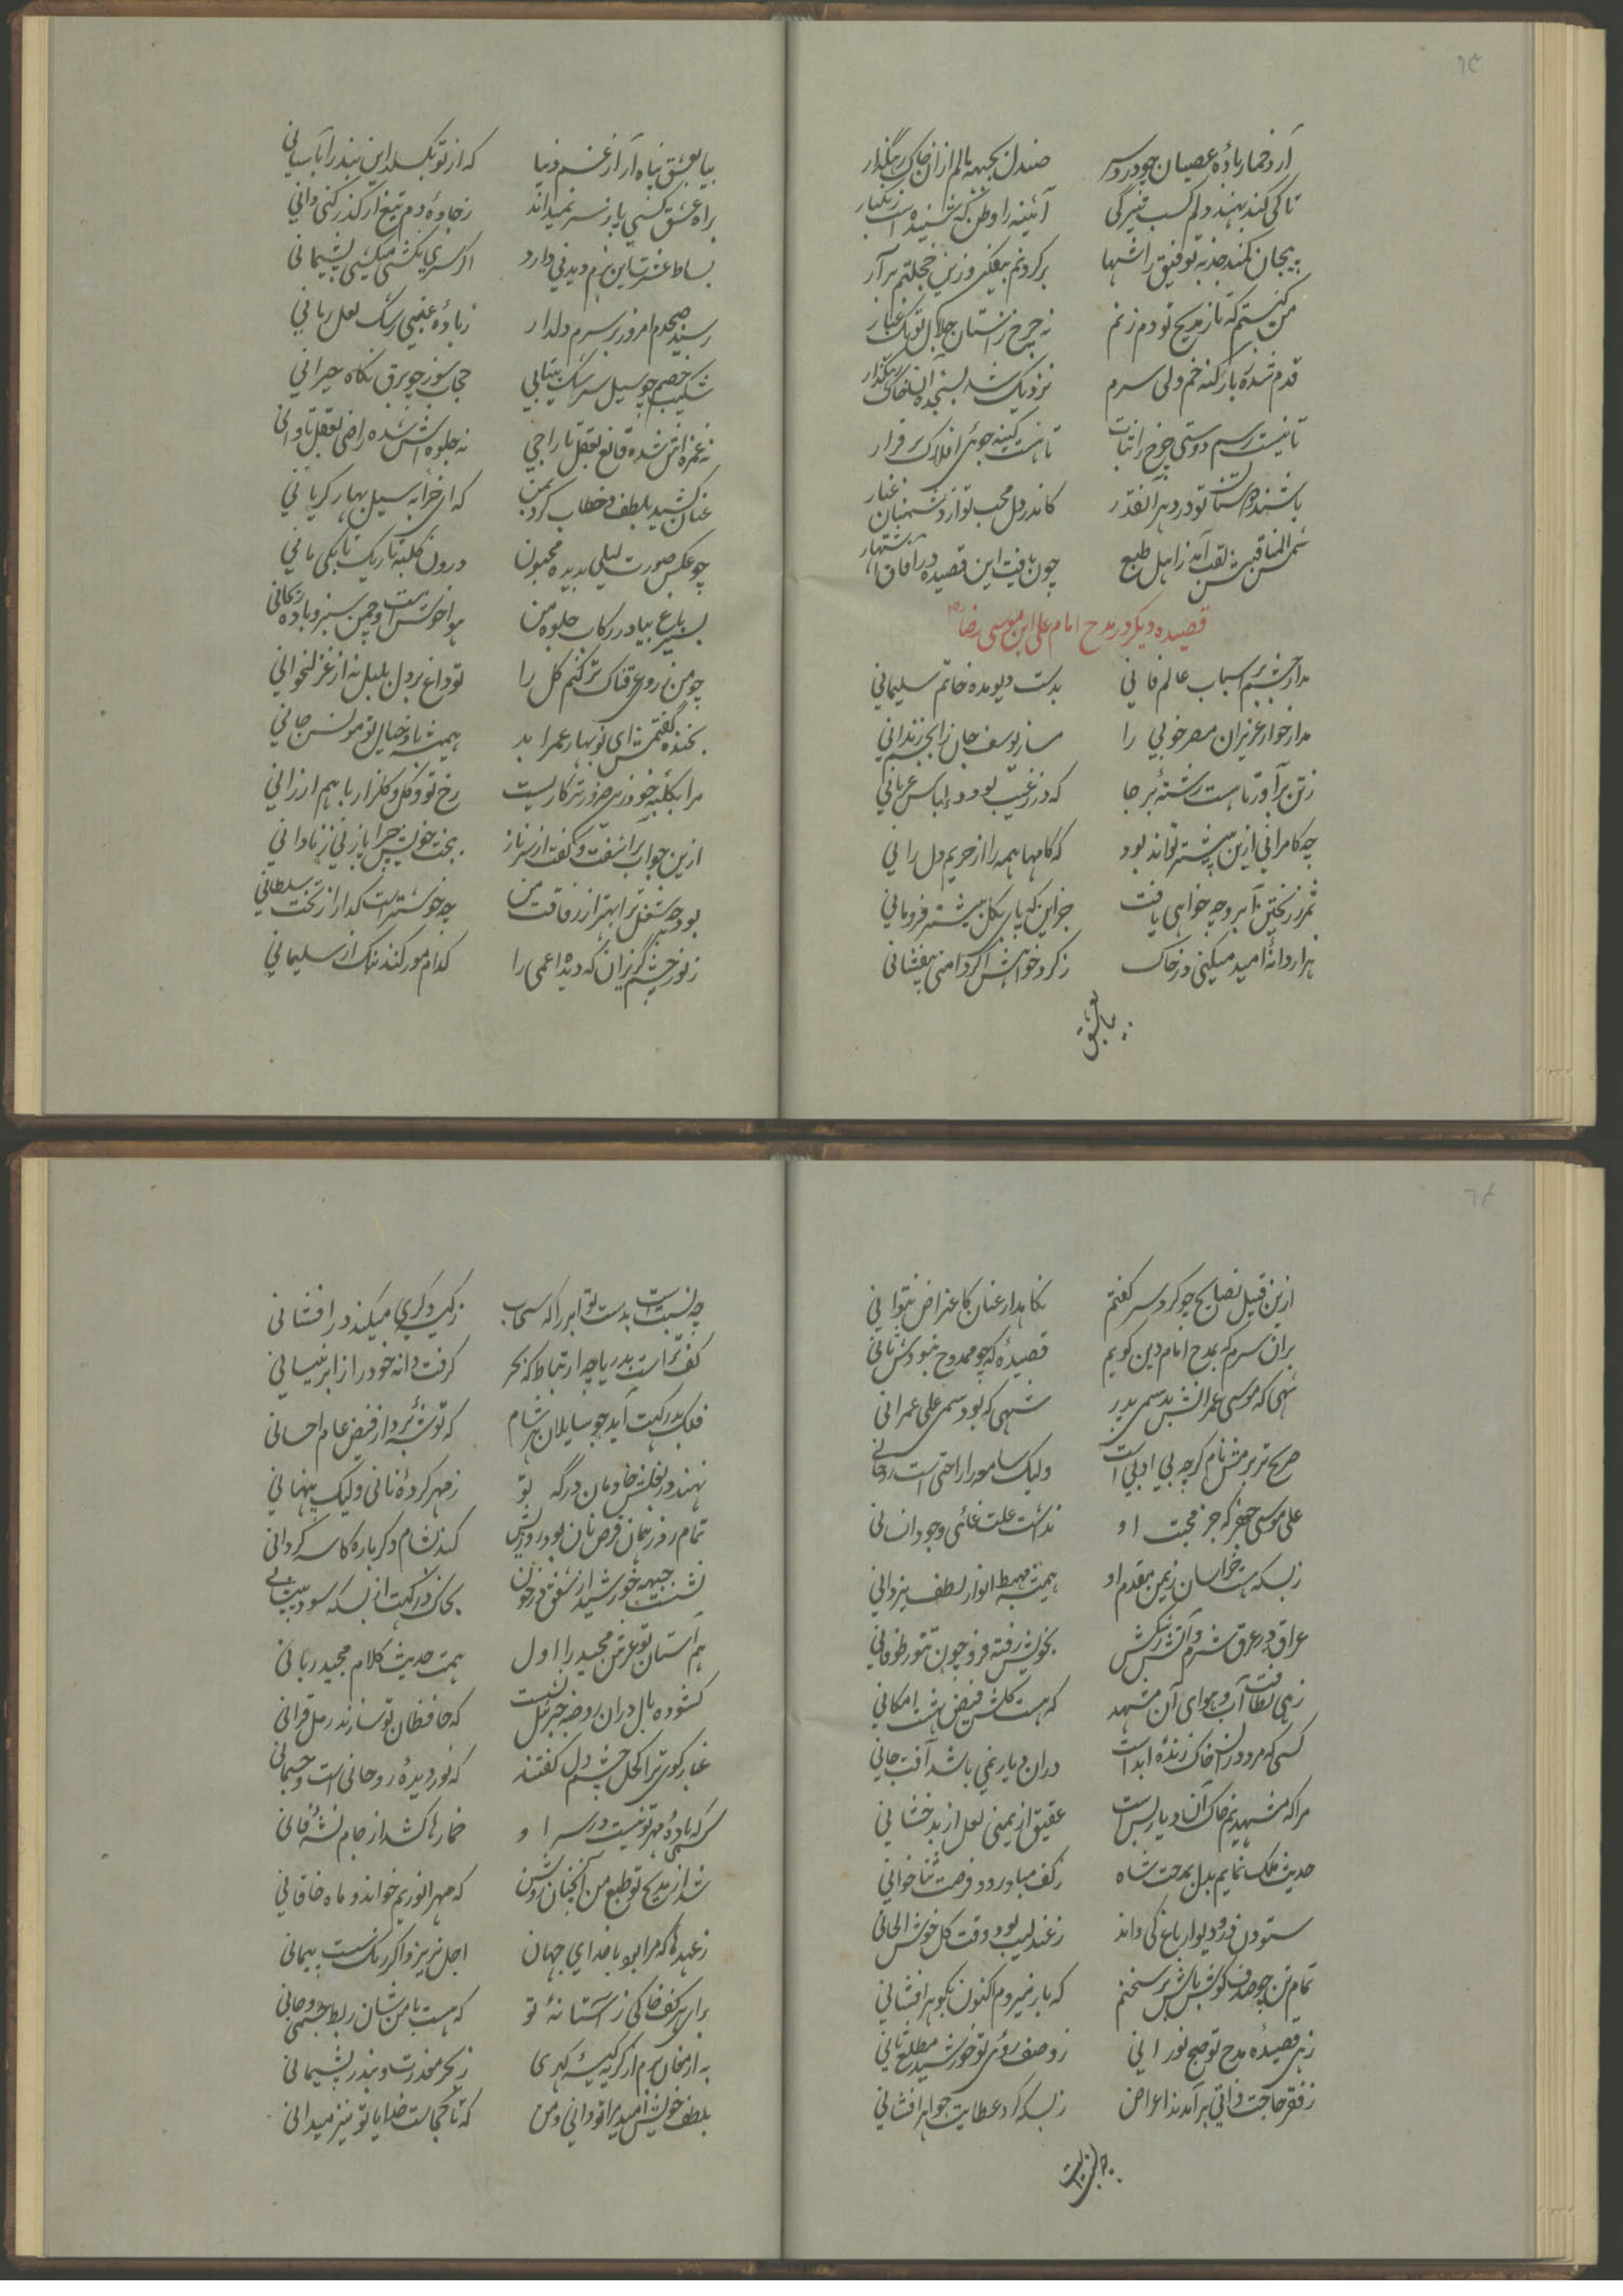 آرد خمار بادهٔ عصیان چو درد سر
صندل بجبهه مالم ازان خاک رهگذار
تا کی کند بهند دلم کسب تیرگی
آئینه را وطن که شنیده است زنگبار
پیچان کمند جذبه توفیق را شها
برگردنم بیفکن وزین خجلتم برآر
من کیستم که تا ز مدیح تو دم زنم
نه چرخ ز استان جلال تو یک غبار
قدم شده ز بار گنه خم ولی سرم
نزدیک شد بسجده آن خاک رهگذار
تا نیست رسم دوستی چرخ را ثبات
تا هست کینه جوئی افلاک برقرار
باشند دوستان تو در دهر آنقدر
کاندر دل محب تو از دشمنان غبار
شمس المناقبش لقب آمد ز اهل طبع
چون یافت این قصیده در آفاق اشتهار
قصیده دیگر در مدح امام علی ابن موسی رضا
مدار چشم بر اسباب عالم فانی
بدست دیو مده خاتم سلیمانی
مدار خوار عزیزان مصر خوبی را
مساز یوسف جان را بجسم زندانی
ز تن برآور تا هست رشتهٔ بر جا
که در زغیب بود در لباس عریانی
چه کامرانی ازین بیشتر تواند بود
که کامها همه را از حریم دل رانی
ثمر ز ریختن آبرو چه خواهی یافت
جز این که پای بگل بیشتر فرومانی
هزار دانهٔ امید میکنی در خاک
ز گرد خواهش اگر دامنی بیفشانی
بیا بعشق
بیا بعشق پناه آر از غم دنیا
که از تو بگسلد این بند را بآسانی
براه عشق کسی پا ز سر نمیداند
ز جادهٔ دم تیغ ار گذر کنی دانی
بساط عشرت این بزم دیدنی دارد
اگر سری نکشی میکشی پشیمانی
رسید صبحدم امروز بر سرم دلدار
ز بادهٔ عنبی رشک لعل رمانی
شکیب خصم چو سیل سرشک بیتابی
حجاب سوز چو برق نگاه حیرانی
نه غمزه اش شده قانع بعقل تاراجی
نه جلوه اش شده راضی بعقل تاوانی
عنان کشید بلطف و خطاب کرد بمن
که ای خرابه سیل بهار گریانی
چو عکس صورت لیلی بدیده مجنون
درون کلبه تاریک تا بکی مانی
بسیر باغ بیا در رکاب جلوه من
هوا خوش است و چمن سبز و باده ریحانی
چو من ز روی عرقناک تر کنم گل را
تو داغ بر دل بلبل نه از غزلخوانی
بخنده گفتمش ای نوبهار عمر ابد
همیشه باد خیال تو مونس جانی
مرا بکلبه خود زین ضرورتر کاریست
رخ تو و گل و گلزار با هم ارزانی
ازین جواب برآشفت و گفت از سر ناز
ببخت خویش چرا پا زنی ز نادانی
بود چه شغل ترا بهتر از رفاقت من
چه خوشتر است گدا را ز تخت سلطانی
ز نور چشم گریزان که دیده اعمی را
کدام مور کند ننگ از سلیمانی
ازین قبیل نصایح چو کرد سر گفتم
نگاهدار عنان کاعتراض نتوانی
بران سرم که بمدح امام دین گویم
قصیدهٔ که چو ممدوح نبودش ثانی
شهی که موسی عمرانش بد سمی پدر
شهی که بود سمی علی عمرانی
صریح تر بر مش نام گرچه بی ادبی است
ولیک سامعه را راحتی است روحانی
علی موسی جعفر که جز محبت او
نداشت علت غائی وجود انسانی
ز بسکه هست خراسان ز یمن مقدم او
همیشه مهبط انوار لطف یزدانی
عراق در عرق شرم و آتش رشکش
بخویش رفته فرو چون تنور طوفانی
زهی لطافت آب و هوای آن مشهد
که هست گلشن فیض بهشت امکانی
کسی که مرد دران خاک زندهٔ ابد است
دران دیار نمی باشد آفت جانی
مرا که مشهدیم خاک آن دیار بس است
عقیق از یمنی لعل از بدخشانی
حدیث ملک نمایم بدل بمدحت شاه
ز کف مباد رود فرصت ثناخوانی
ستودن در و دیوار باغ کی داند
ز عندلیب بود وقت گل خوش الحانی
تمام تن چو صدف گوش باش بر سخنم
که باز میروم اکنون بگوهر افشانی
زهی قصیدهٔ مدح تو صبح نورانی
ز وصف روی تو خورشید مطلع ثانی
ز فقر حاجت ذاتی برآمدند اعراض
ز بسکه کرد عطایت جواهر افشانی
چه نسبت است
چه نسبت است بدست تو ابر را که سحاب
ز کیسه دگری میکند در افشانی
کف ترا ست بدریا چه ارتباط که بحر
گرفت دانه خود را ز ابر نیسانی
فلک بدرگهت آید چو سایلان هر شام
که توشهٔ برد از فیض عام احسانی
نهند در بغلش خادمان درگه تو
ز مهر گردهٔ نانی ولیک پنهانی
تمام روز همان قرص نان بود در پیش
کند بشام دگر باره کاسه گردانی
نشست جبهه خورشید از شفق در خون
بخاک درگهت از بسکه سود پیشانی
هم آستان تو عرش مجید را اول
همت حدیث کلام مجید ربانی
گشوده بال دران روضه جبرئیل نشست
که حافظان تو سازند رحل قرآنی
غبار کوی ترا کحل چشم دل گفتند
که نور دیدهٔ روحانی است و جسمانی
کسی که بادهٔ مهر تو نیست در سر او
خمارها کشد از جام نشهٔ فانی
شد از مدیح تو طبع من آنچنان روشن
که مهر انوریم خواند و ماه خاقانی
ز عهدها که مرا بود با خدای جهان
اجل نریزد اگر رنگ سست پیمانی
برای هر کف خاکی ز آستانهٔ تو
که هست با من شان ربط جسمی و جانی
به ارمغان برم از گریه کیسهٔ گهری
ز بحر معذرت و بندر پشیمانی
بلطف خویش امید مرا تو دانی و من
که تا کجاست خدایا تو نیز میدانی